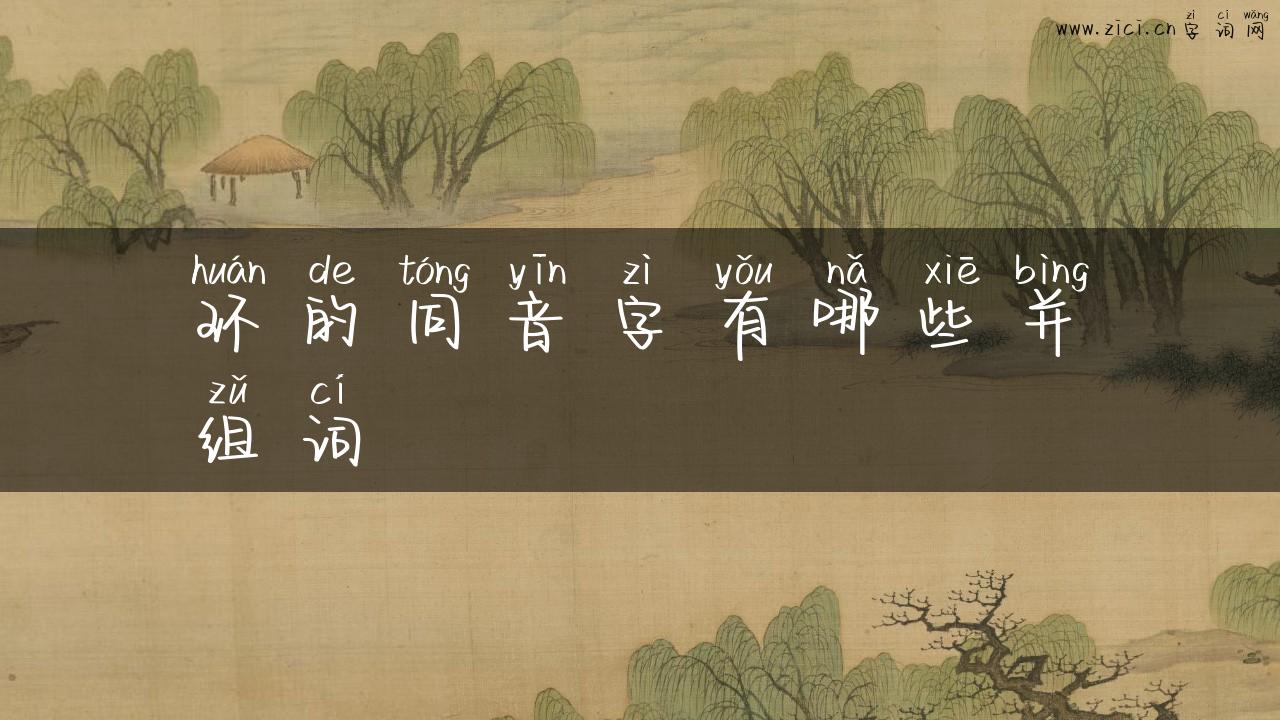 zì cí wǎng
www.zici.cn 字词网
huán de tóng yīn zì yǒu nǎ xiē bìng
环的同音字有哪些并
zǔ cí
组词